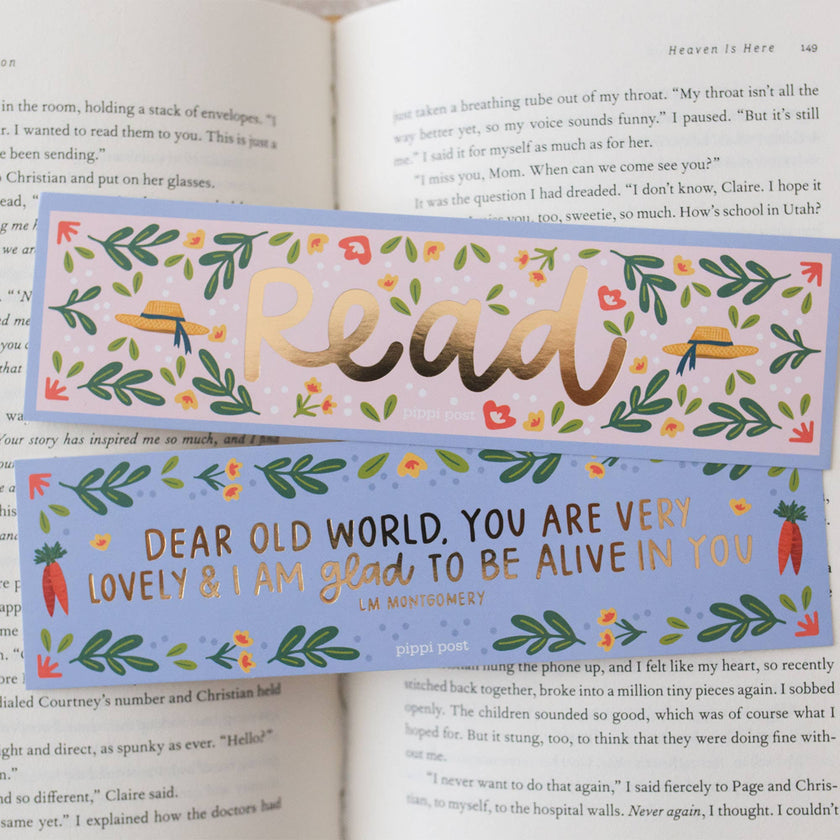 on
in the room, holding a stack of envelopes. "I
r. I wanted to read them to you. This is just a
e been sending."
Christian and put on her glasses.
ead, "
we are
"'N
ed me
you c
that
wa
Your story has inspired me so much, and I find
dialed Courtney's number and Christian held
ight and direct, as spunky as ever. "Hello?"
n."
nd so different," Claire said.
same yet." I explained how the doctors had
Heaven Is Here 149
just taken a breathing tube out of my throat. "My throat isn't all the
way better yet, so my voice sounds funny." I paused. "But it's still
me." I said it for myself as much as for her.
"I miss you, Mom. When can we come see you?"
It was the question I had dreaded. "I don't know, Claire. I hope it
you, too, sweetie, so much. How's school in Utah?
Read
pippi post
DEAR OLD WORLD, YOU ARE VERY
LOVELY & I AM glad TO BE ALIVE IN YOU
LM MONTGOMERY
pippi post
hung the phone up, and I felt like my heart, so recently
stitched back together, broke into a million tiny pieces again. I sobbed
openly. The children sounded so good, which was of course what I
hoped for. But it stung, too, to think that they were doing fine with-
out me.
"I never want to do that again," I said fiercely to Page and Chris-
tian, to myself, to the hospital walls. Never again, I thought. I couldn't